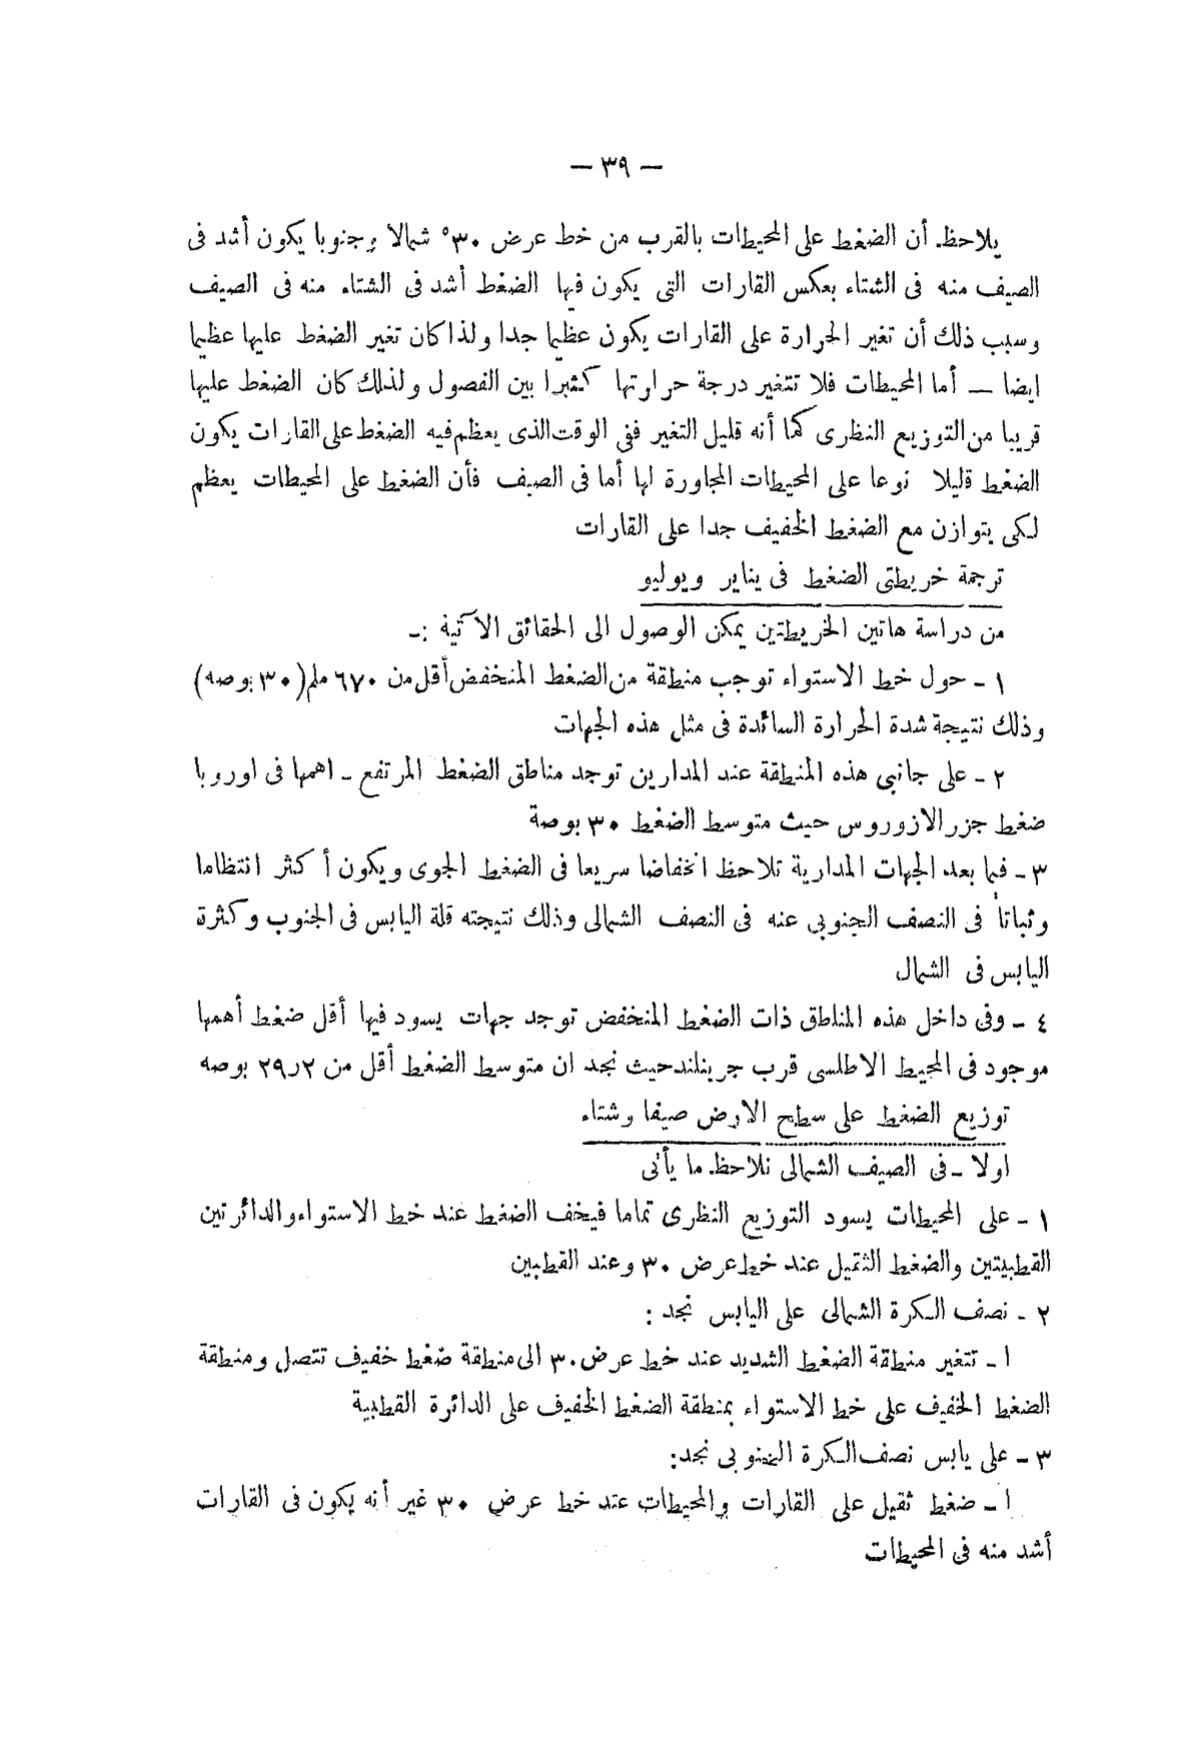 — ٣٩ —
يلاحظ. أن الضغط على المحيطات بالقرب من خط عرض ٣٠° شمالا وجنوبا يكون أشد فى
الصيف منه فى الشتاء بعكس القارات التى يكون فيها الضغط أشد فى الشتاء منه فى الصيف
وسبب ذلك أن تغير الحرارة على القارات يكون عظيما جدا ولذا كان تغير الضغط عليها عظيما
ايضا — أما المحيطات فلا تتغير درجة حرارتها كثيرا بين الفصول ولذلك كان الضغط عليها
قريبا من التوزيع النظرى كما أنه قليل التغير ففى الوقت الذى يعظم فيه الضغط على القارات يكون
الضغط قليلا نوعا على المحيطات المجاورة لها أما فى الصيف فأن الضغط على المحيطات يعظم
لكى يتوازن مع الضغط الخفيف جدا على القارات
ترجمة خريطتى الضغط فى يناير ويوليو
من دراسة هاتين الخريطتين يمكن الوصول الى الحقائق الآتية :-
١ - حول خط الاستواء توجب منطقة من الضغط المنخفض أقل من ٦٧٠ ملم (٣٠ بوصه)
وذلك نتيجة شدة الحرارة السائدة فى مثل هذه الجهات
٢ - على جانبى هذه المنطقة عند المدارين توجد مناطق الضغط المرتفع - اهمها فى اوروبا
ضغط جزر الازوروس حيث متوسط الضغط ٣٠ بوصة
٣ - فيما بعد الجهات المدارية تلاحظ انخفاضا سريعا فى الضغط الجوى ويكون أكثر انتظاما
وثباتا فى النصف الجنوبى عنه فى النصف الشمالى وذلك نتيجته قلة اليابس فى الجنوب وكثرة
اليابس فى الشمال
٤ - وفى داخل هذه المناطق ذات الضغط المنخفض توجد جهات يسود فيها أقل ضغط أهمها
موجود فى المحيط الاطلسى قرب جرينلند حيث نجد ان متوسط الضغط أقل من ٢٩٫٢ بوصه
توزيع الضغط على سطح الارض صيفا وشتاء
اولا - فى الصيف الشمالى نلاحظ. ما يأتى
١ - على المحيطات يسود التوزيع النظرى تماما فيخف الضغط عند خط الاستواء والدائرتين
القطبيتين والضغط الثقيل عند خط عرض ٣٠ وعند القطبين
٢ - نصف الكرة الشمالى على اليابس نجد :
ا - تتغير منطقة الضغط الشديد عند خط عرض ٣٠ الى منطقة ضغط خفيف تتصل ومنطقة
الضغط الخفيف على خط الاستواء بمنطقة الضغط الخفيف على الدائرة القطبية
٣ - على يابس نصف الكرة الجنوبى نجد:
ا - ضغط ثقيل على القارات والمحيطات عند خط عرض ٣٠ غير أنه يكون فى القارات
أشد منه فى المحيطات